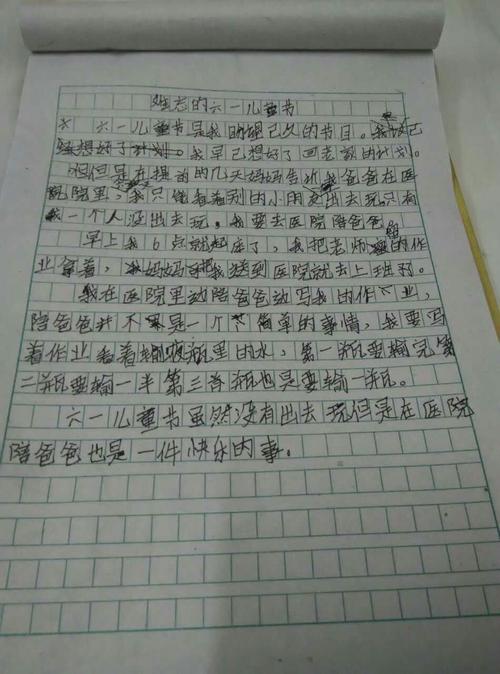 难忘的六一儿童节
六一儿童节是我盼望已久的节目。我
我早已想好了回老家的计划。
但是在提前的几天妈妈告诉我爸爸在医
院里，我只能看着别的小朋友出去玩只有
我一个人没出去玩。我要去医院陪爸爸
早上我6点就起床了，我把老师的作
业拿着，妈妈把我送到医院就去上班了。
我在医院里边陪爸爸边写我的作业，
陪爸爸并不是一个简单的事情，我要写
着作业看着输液瓶里的水，第一瓶要输完第
二瓶要输一半第三瓶也是要输一瓶。
六一儿童节虽然没有出去玩但是在医院
陪爸爸也是一件快乐的事。